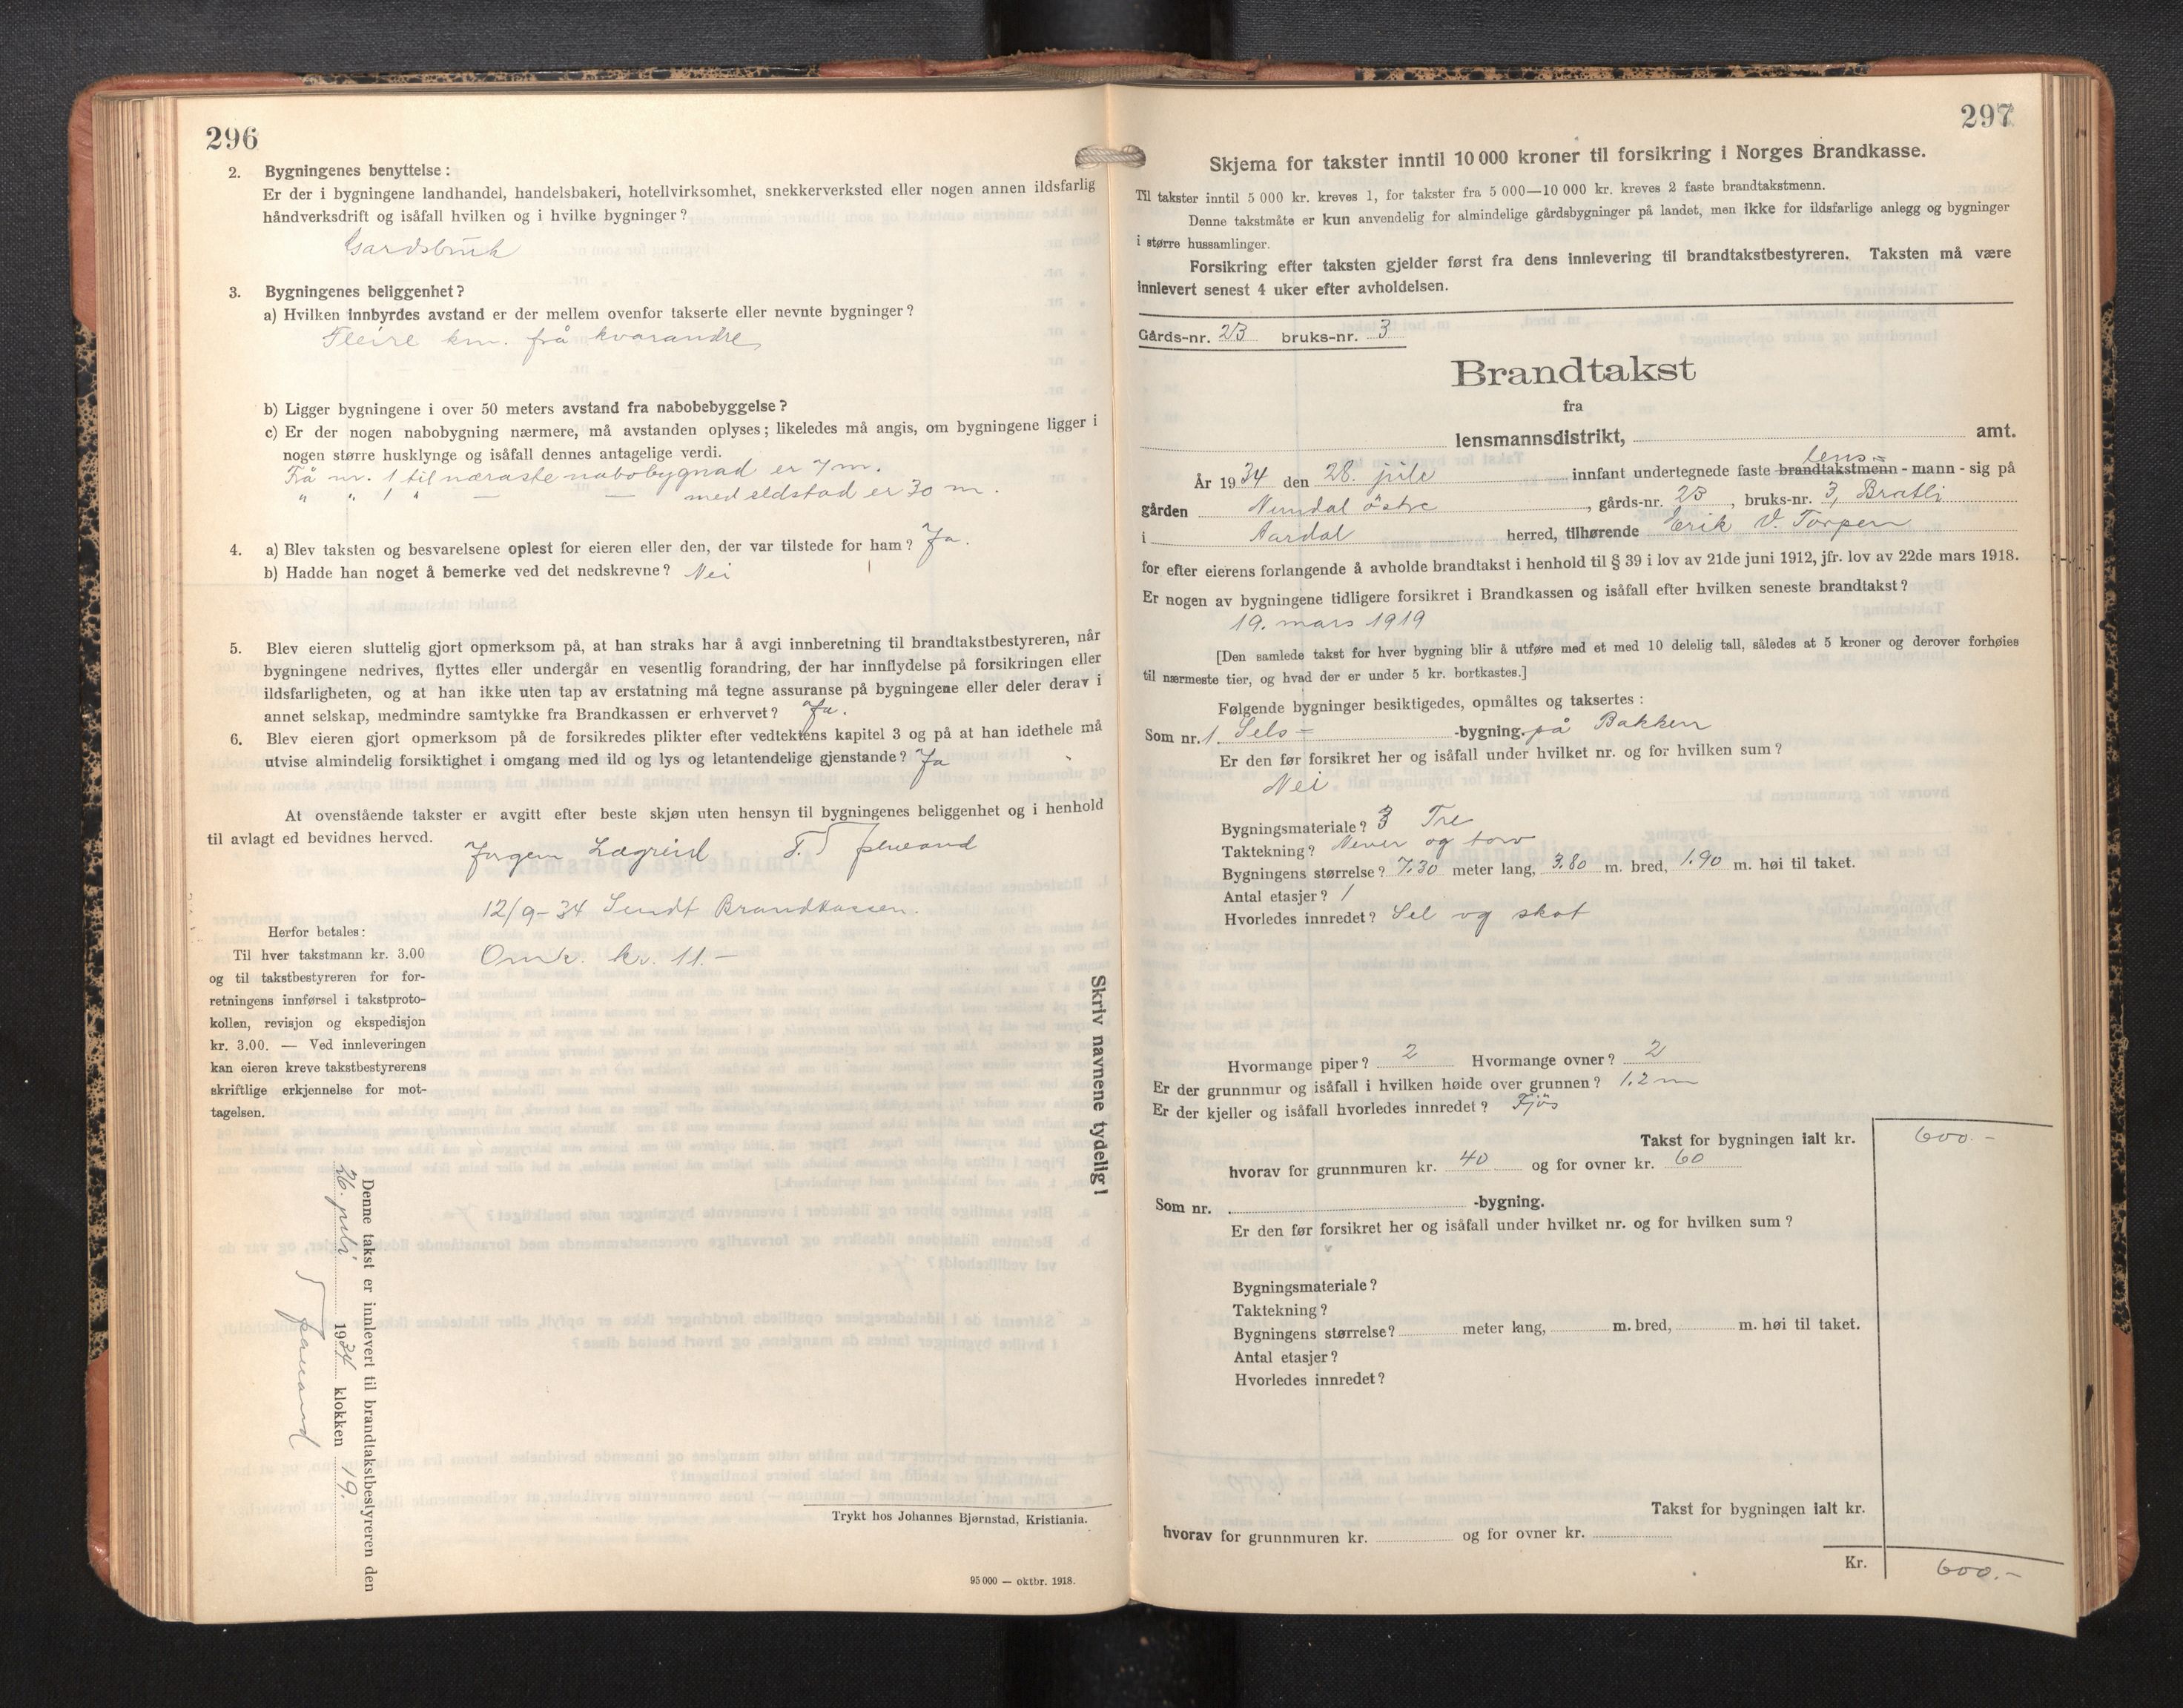 296
2. Bygningenes benyttelse:
Er der i bygningene landhandel, handelsbakeri, hotellvirksomhet, snekkerverksted eller nogen annen ildsfarlig
håndverksdrift og isåfall hvilken og i hvilke bygninger?
Gardsbruk
3. Bygningenes beliggenhet?
a) Hvilken innbyrdes avstand er der mellem ovenfor takserte eller nevnte bygninger?
Fleire km. frå kvarandre
b) Ligger bygningene i over 50 meters avstand fra nabobebyggelse?
c) Er der nogen nabobygning nærmere, må avstanden oplyses; likeledes må angis, om bygningene ligger i
nogen større husklynge og isåfall dennes antagelige verdi.
Frå nr. 1 til næraste nabobygnad er 7 m.
" " 1 " — — med eldstad er 30 m.
4. a) Blev taksten og besvarelsene oplest for eieren eller den, der var tilstede for ham? Ja.
b) Hadde han noget å bemerke ved det nedskrevne? Nei
5. Blev eieren sluttelig gjort opmerksom på, at han straks har å avgi innberetning til brandtakstbestyreren, når
bygningene nedrives, flyttes eller undergår en vesentlig forandring, der har innflydelse på forsikringen eller
ildsfarligheten, og at han ikke uten tap av erstatning må tegne assuranse på bygningene eller deler derav i
annet selskap, medmindre samtykke fra Brandkassen er erhvervet? Ja.
6. Blev eieren gjort opmerksom på de forsikredes plikter efter vedtektens kapitel 3 og på at han idethele må
utvise almindelig forsiktighet i omgang med ild og lys og letantendelige gjenstande? Ja
At ovenstående takster er avgitt efter beste skjøn uten hensyn til bygningenes beliggenhet og i henhold
til avlagt ed bevidnes herved.
Jørgen Lægreid
12/9-34 Sendt Brandkassen.
Omk. kr. 11.-
Herfor betales:
Til hver takstmann kr. 3.00
og til takstbestyreren for for-
retningens innførsel i takstproto-
kollen, revisjon og ekspedisjon
kr. 3.00. — Ved innleveringen
kan eieren kreve takstbestyrerens
skriftlige erkjennelse for mot-
tagelsen.
Skriv navnene tydelig!
Denne takst er innlevert til brandtakstbestyreren den
26. juli 1934 klokken 19.
Trykt hos Johannes Bjørnstad, Kristiania.
95 000 — oktbr. 1918.
297
Skjema for takster inntil 10 000 kroner til forsikring i Norges Brandkasse.
Til takster inntil 5 000 kr. kreves 1, for takster fra 5 000—10 000 kr. kreves 2 faste brandtakstmenn.
Denne takstmåte er kun anvendelig for almindelige gårdsbygninger på landet, men ikke for ildsfarlige anlegg og bygninger
i større hussamlinger.
Forsikring efter taksten gjelder først fra dens innlevering til brandtakstbestyreren. Taksten må være
innlevert senest 4 uker efter avholdelsen.
Gårds-nr. 23 bruks-nr. 3
Brandtakst
fra
lensmannsdistrikt, amt.
lens-
År 1934 den 28. juli innfant undertegnede faste brandtakstmenn - mann - sig på
gården Nundal östre, gårds-nr. 23, bruks-nr. 3, Bratli
i Aardal herred, tilhørende Erik V. Torpen
for efter eierens forlangende å avholde brandtakst i henhold til § 39 i lov av 21de juni 1912, jfr. lov av 22de mars 1918.
Er nogen av bygningene tidligere forsikret i Brandkassen og isåfall efter hvilken seneste brandtakst?
19. mars 1919
[Den samlede takst for hver bygning blir å utføre med et med 10 delelig tall, således at 5 kroner og derover forhøies
til nærmeste tier, og hvad der er under 5 kr. bortkastes.]
Følgende bygninger besiktigedes, opmåltes og taksertes:
Som nr. 1. Sels- -bygning. på Bakken
Er den før forsikret her og isåfall under hvilket nr. og for hvilken sum?
Nei
Bygningsmateriale? 3 Tre
Taktekning? Never og torv
Bygningens størrelse? 7.30 meter lang, 3.80 m. bred, 1.90 m. høi til taket.
Antal etasjer? 1
Hvorledes innredet? Sel og skot
Hvormange piper? 2 Hvormange ovner? 2
Er der grunnmur og isåfall i hvilken høide over grunnen? 1.2 m
Er der kjeller og isåfall hvorledes innredet? Fjös
Takst for bygningen ialt kr. 600.-
hvorav for grunnmuren kr. 40 og for ovner kr. 60
Som nr. -bygning.
Er den før forsikret her og isåfall under hvilket nr. og for hvilken sum?
Bygningsmateriale?
Taktekning?
Bygningens størrelse? meter lang, m. bred, m. høi til taket.
Antal etasjer?
Hvorledes innredet?
Takst for bygningen ialt kr.
hvorav for grunnmuren kr. og for ovner kr.
Kr. 600.-